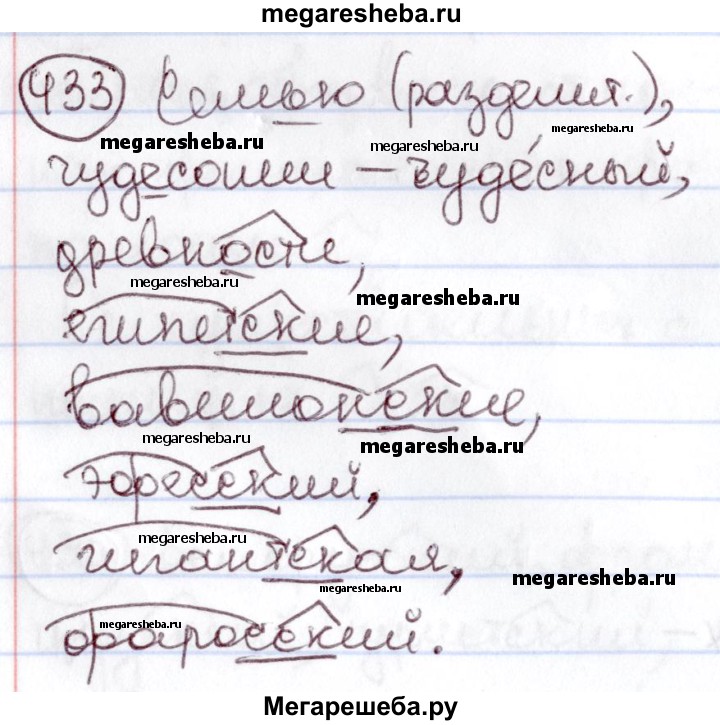 megaresheba.ru
433 Семью (разделит.),
megaresheba.ru
megaresheba.ru
чудесами – чуде́сный,
древности,
megaresheba.ru
megaresheba.ru
египетские,
вавилонские,
megaresheba.ru
megaresheba.ru
эфесский,
megaresheba.ru
гигантская,
megaresheba.ru
megaresheba.ru
фаросский.
megaresheba.ru
Мегарешеба.ру